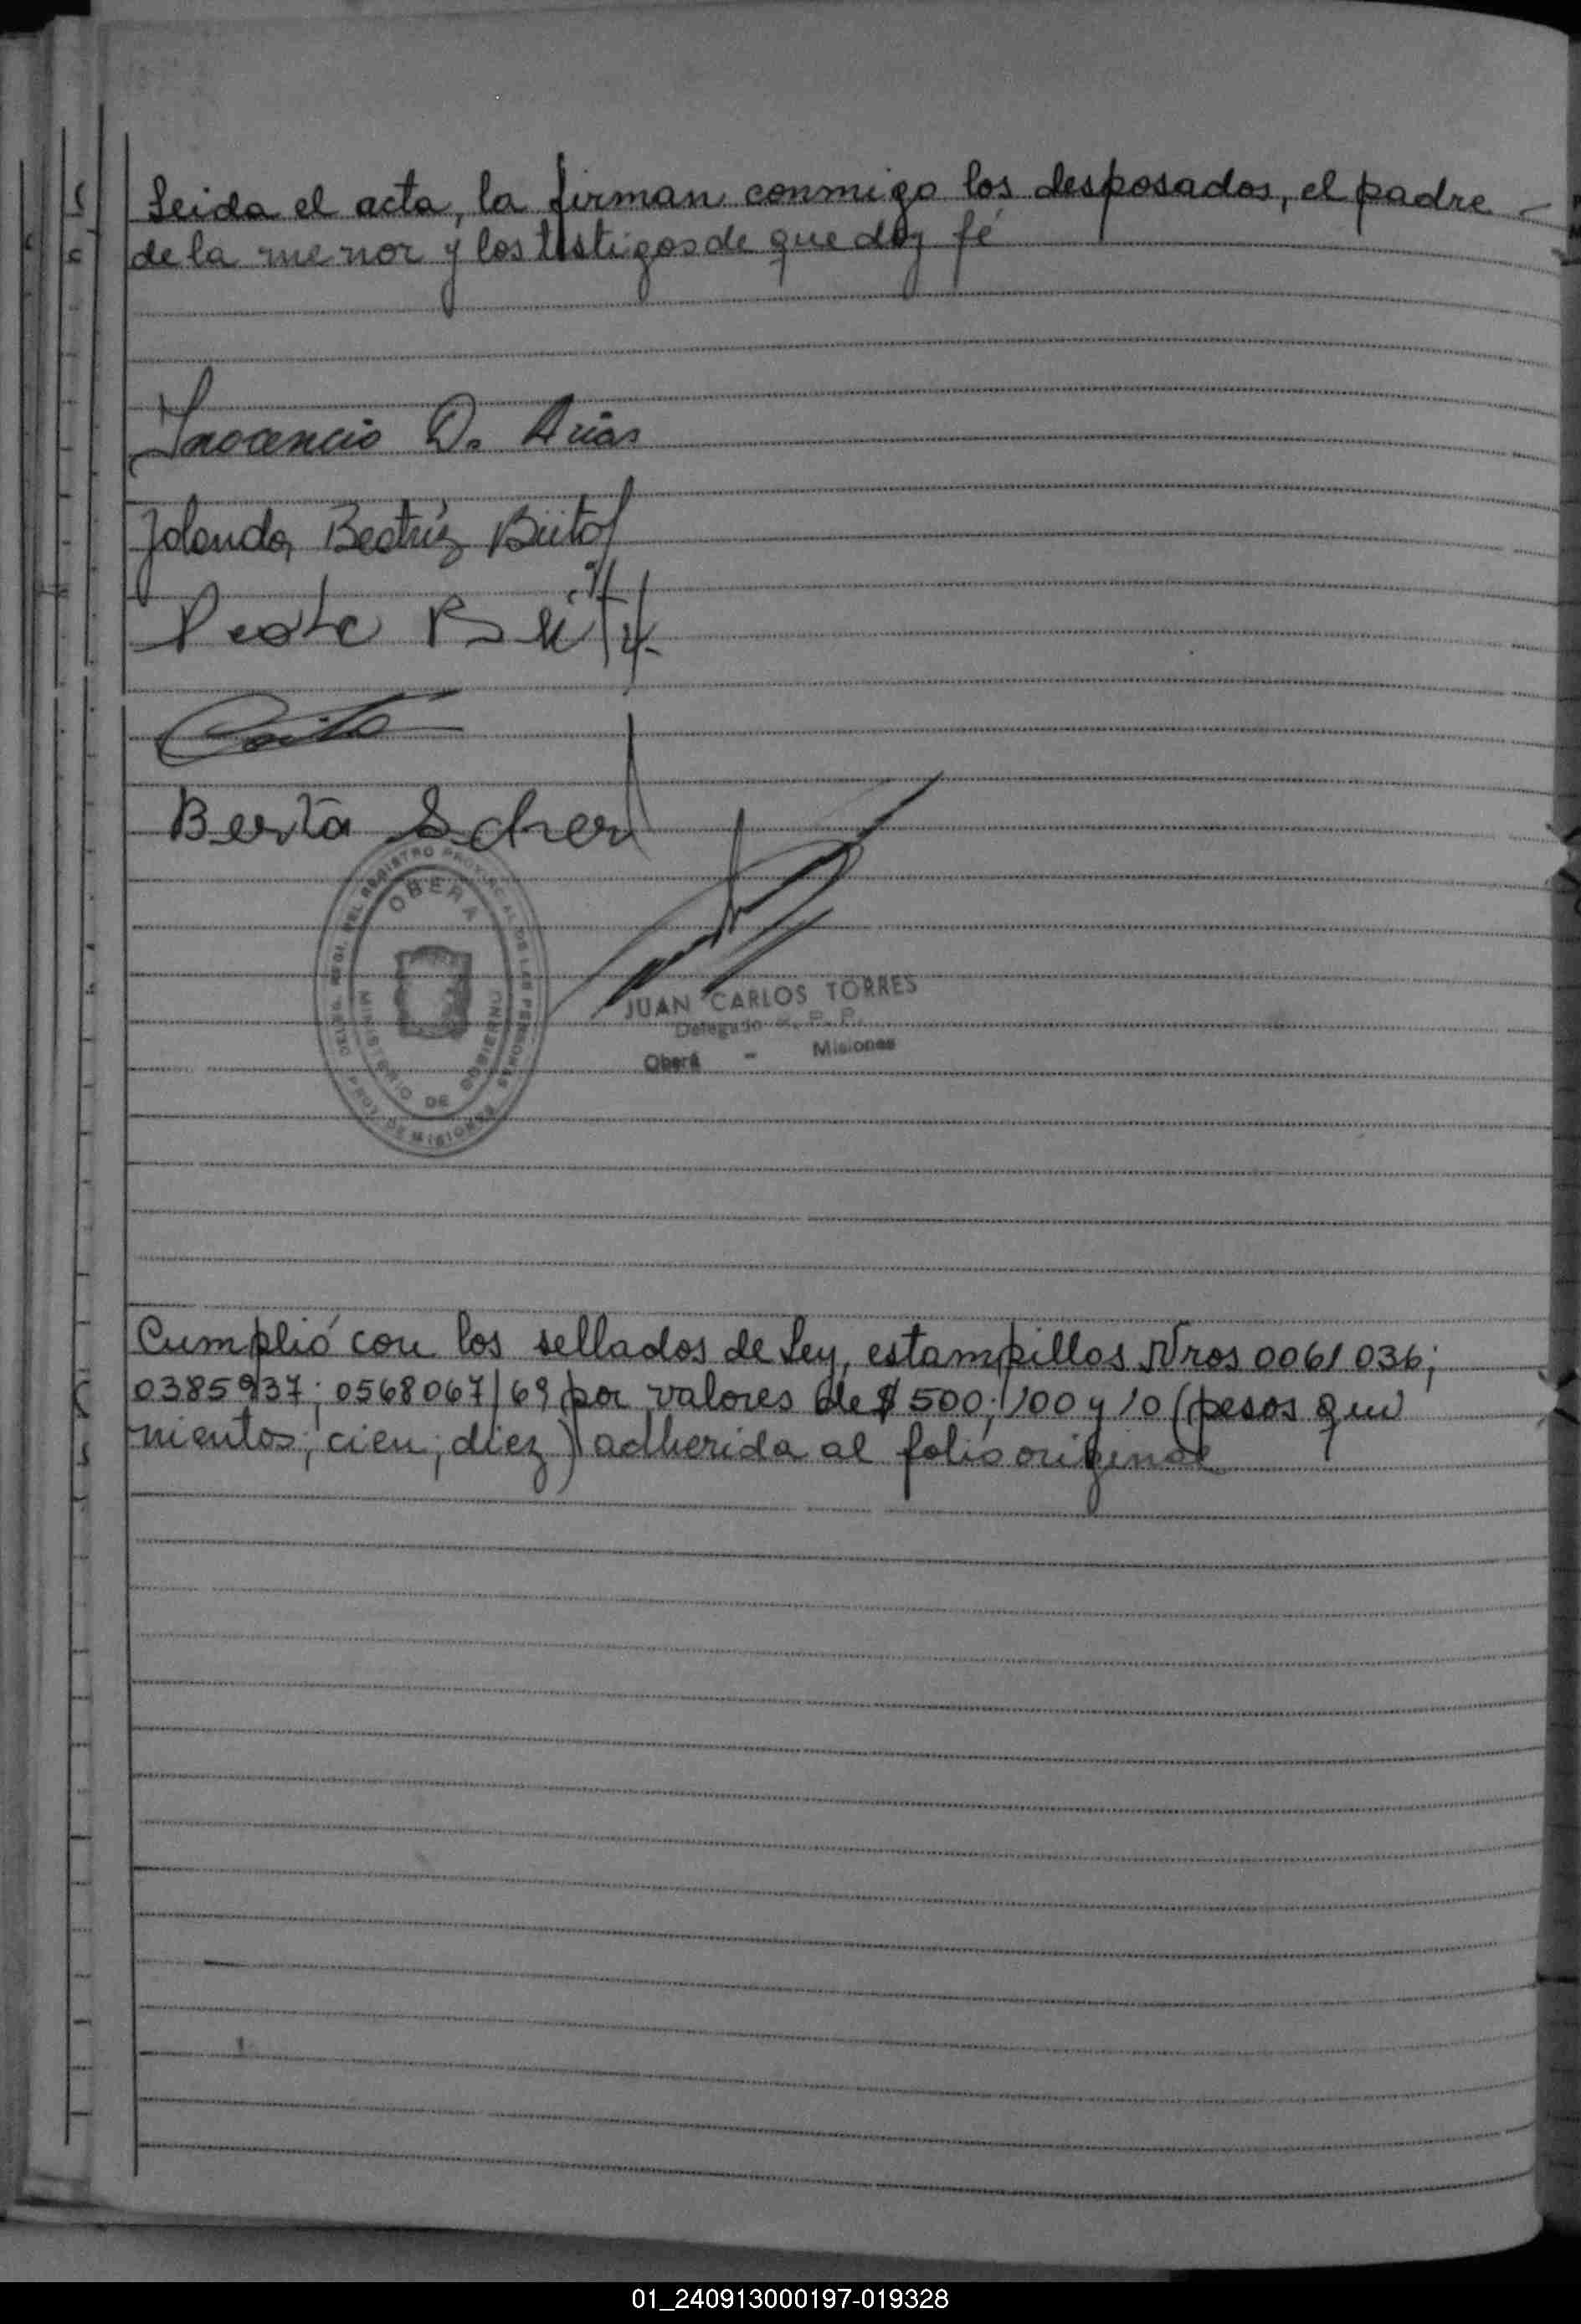 Leida el acta, la firman conmigo los desposados, el padre -
de la menor y los testigos de que doy fé
Inocencio D. Arias
Jolanda Beatríz Büttof
Berta Scherf
OBERA
DELEG. REGI. DEL REGISTRO PROVINCIAL DE LAS PERSONAS
MINISTERIO DE GOBIERNO
PROV. DE MISIONES
JUAN CARLOS TORRES
Delegado R. P. P.
Oberá - Misiones
Cumplió con los sellados de Ley, estampillos Nros 0061036;
0385937; 0568067/69 por valores de $ 500; 100 y 10 (pesos qui
nientos; cien; diez) adherida al folio original
01_240913000197-019328